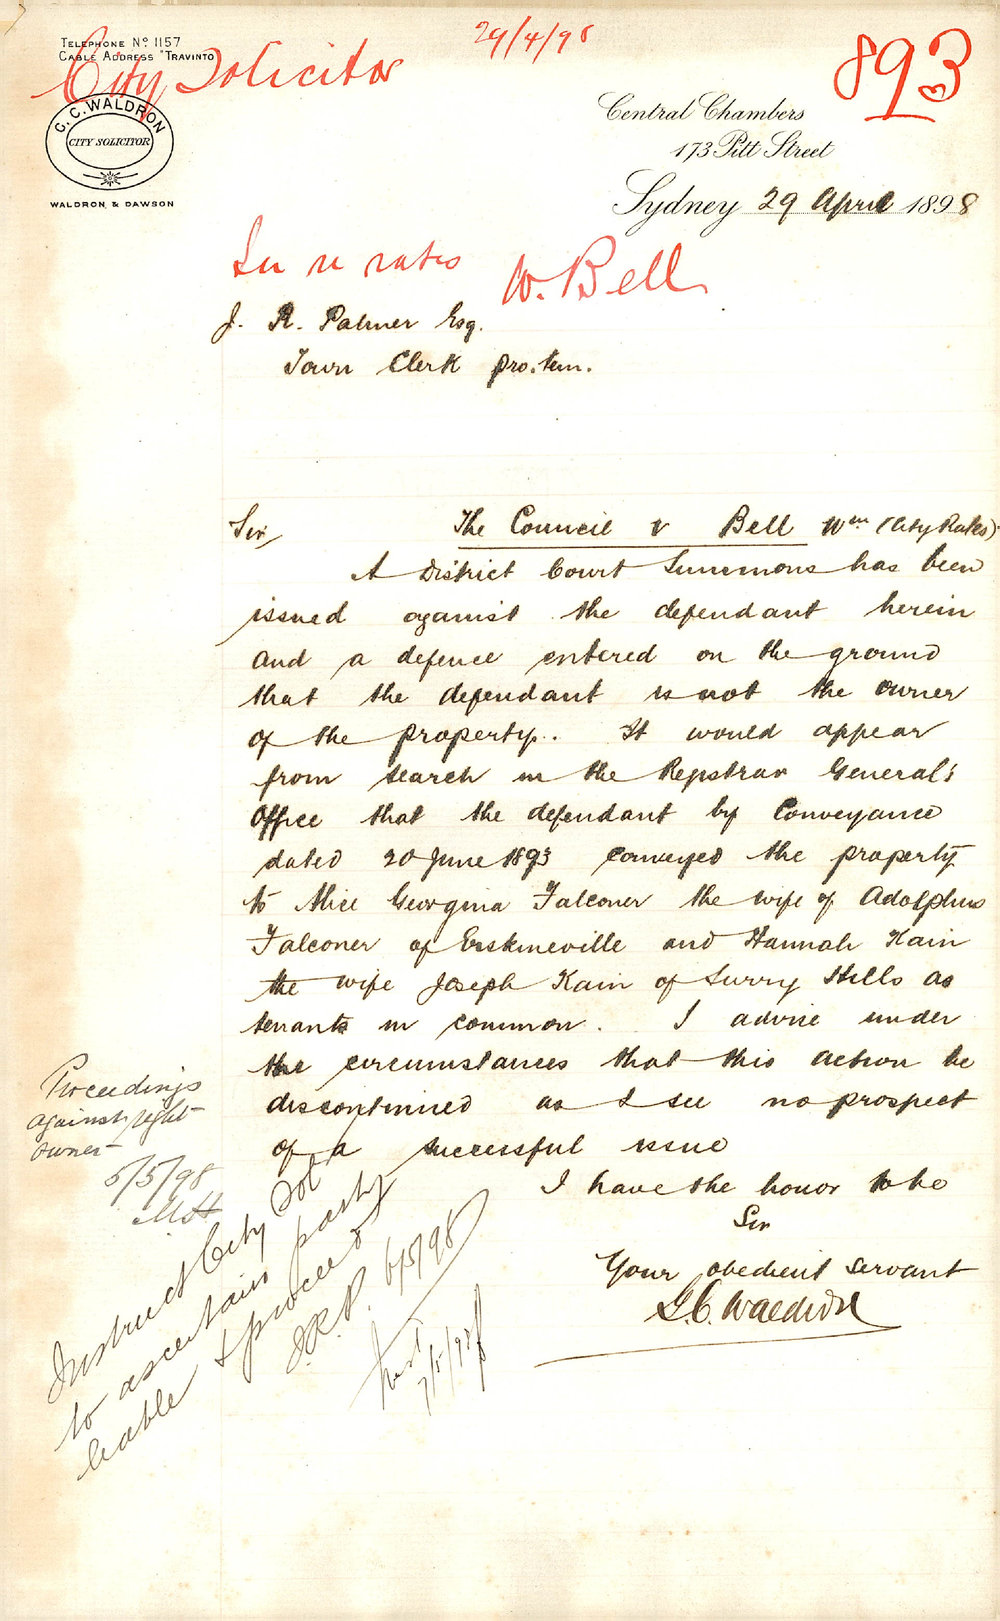 TELEPHONE Nº 1157
CABLE ADDRESS "TRAVINTO"
City Solicitor
29/4/98
893
C. C. WALDRON
CITY SOLICITOR
WALDRON & DAWSON
Central Chambers
173 Pitt Street
Sydney 29 April 1898
rates
W. Bell
J. R. Palmer Esq.
Town Clerk pro. tem.
Sir,
The Council v Bell Wm (City Rates)
A District Court Summons has been
issued against the defendant herein
and a defence entered on the ground
that the defendant is not the owner
of the property. It would appear
from search in the Registrar General's
Office that the defendant by Conveyance
dated 20 June 1893 conveyed the property
to Alice Georgina Falconer the wife of Adolphus
Falconer of Erskineville and Hannah Kain
the wife Joseph Kain of Surry Hills as
tenants in common. I advise under
the circumstances that this action be
discontinued as I see no prospect
of a successful issue
I have the honor to be
Sir
Your obedient servant
G. C. Waldron
Proceedings
against right
owner
5/5/98
Instruct City Sol
to ascertain party
liable & proceed
J.R.P. 6/5/98
7/5/98